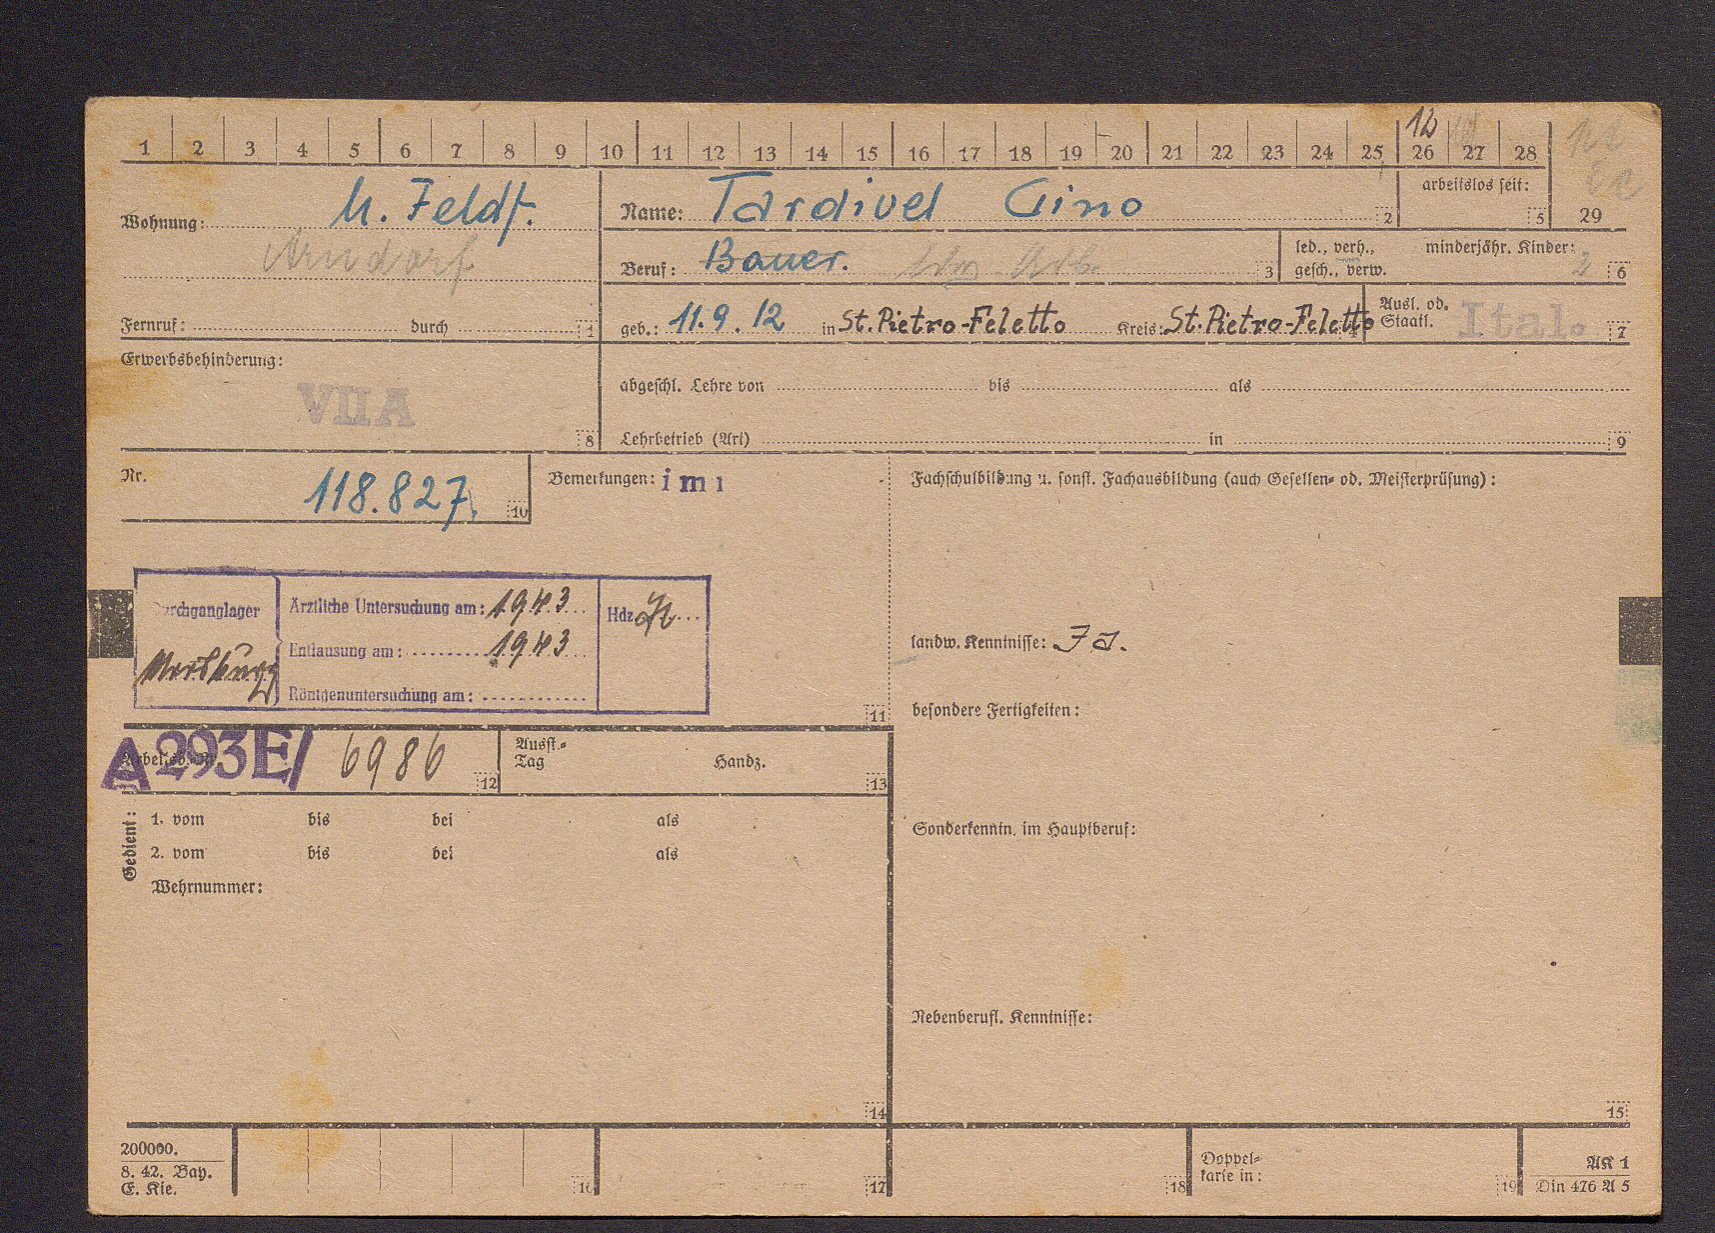 1 2 3 4 5 6 7 8 9 10 11 12 13 14 15 16 17 18 19 20 21 22 23 24 25 26 27 28
12
Wohnung: U. Feldf.
Arndorf
Fernruf: durch 1
Name: Tardivel Gino 2
arbeitslos seit: 5
29
Beruf: Bauer. 3
led., verh., gesch., verw.
minderjähr. Kinder: 2 6
geb.: 11.9.12 in St. Pietro-Feletto Kreis: St. Pietro-Feletto 4
Ausl. od. Staatl. Ital. 7
Erwerbsbehinderung:
VII A
8
abgeschl. Lehre von bis als
Lehrbetrieb (Art) in 9
Nr. 118.827. 10
Bemerkungen: imi
Fachschulbildung u. sonst. Fachausbildung (auch Gesellen- od. Meisterprüfung):
Durchganglager
Ärztliche Untersuchung am: 1943
Hdz
Entlausung am: 1943
Röntgenuntersuchung am:
11
landw. Kenntnisse: Ja.
besondere Fertigkeiten:
A 293E/ 6986 12
Ausst.-Tag Handz. 13
Gedient:
1. vom bis bei als
2. vom bis bei als
Wehrnummer:
14
Sonderkenntn. im Hauptberuf:
Nebenberufl. Kenntnisse:
15
200000.
8. 42. Bay.
E. Kie.
16
17
18
Doppel-
karte in: 19
AK 1
Din 476 A 5